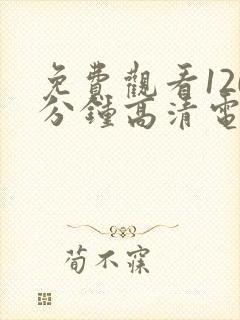 免費觀看120
分鐘高清電
荀不寐